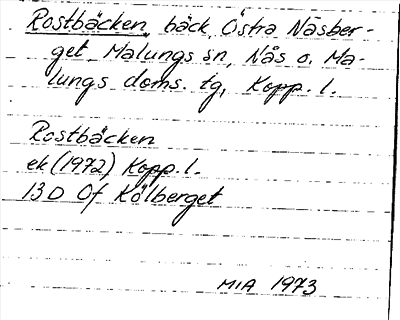 Rostbäcken, bäck, Östra Näsber-
get, Malungs sn, Nås o. Ma-
lungs doms. tg, Kopp. l.
Rostbäcken
ek (1972) Kopp. l.
13D 0f Kölberget
MIA 1973